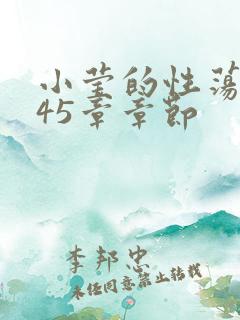 小莹的性荡
45章章节
李邦忠
未经同意禁止转载